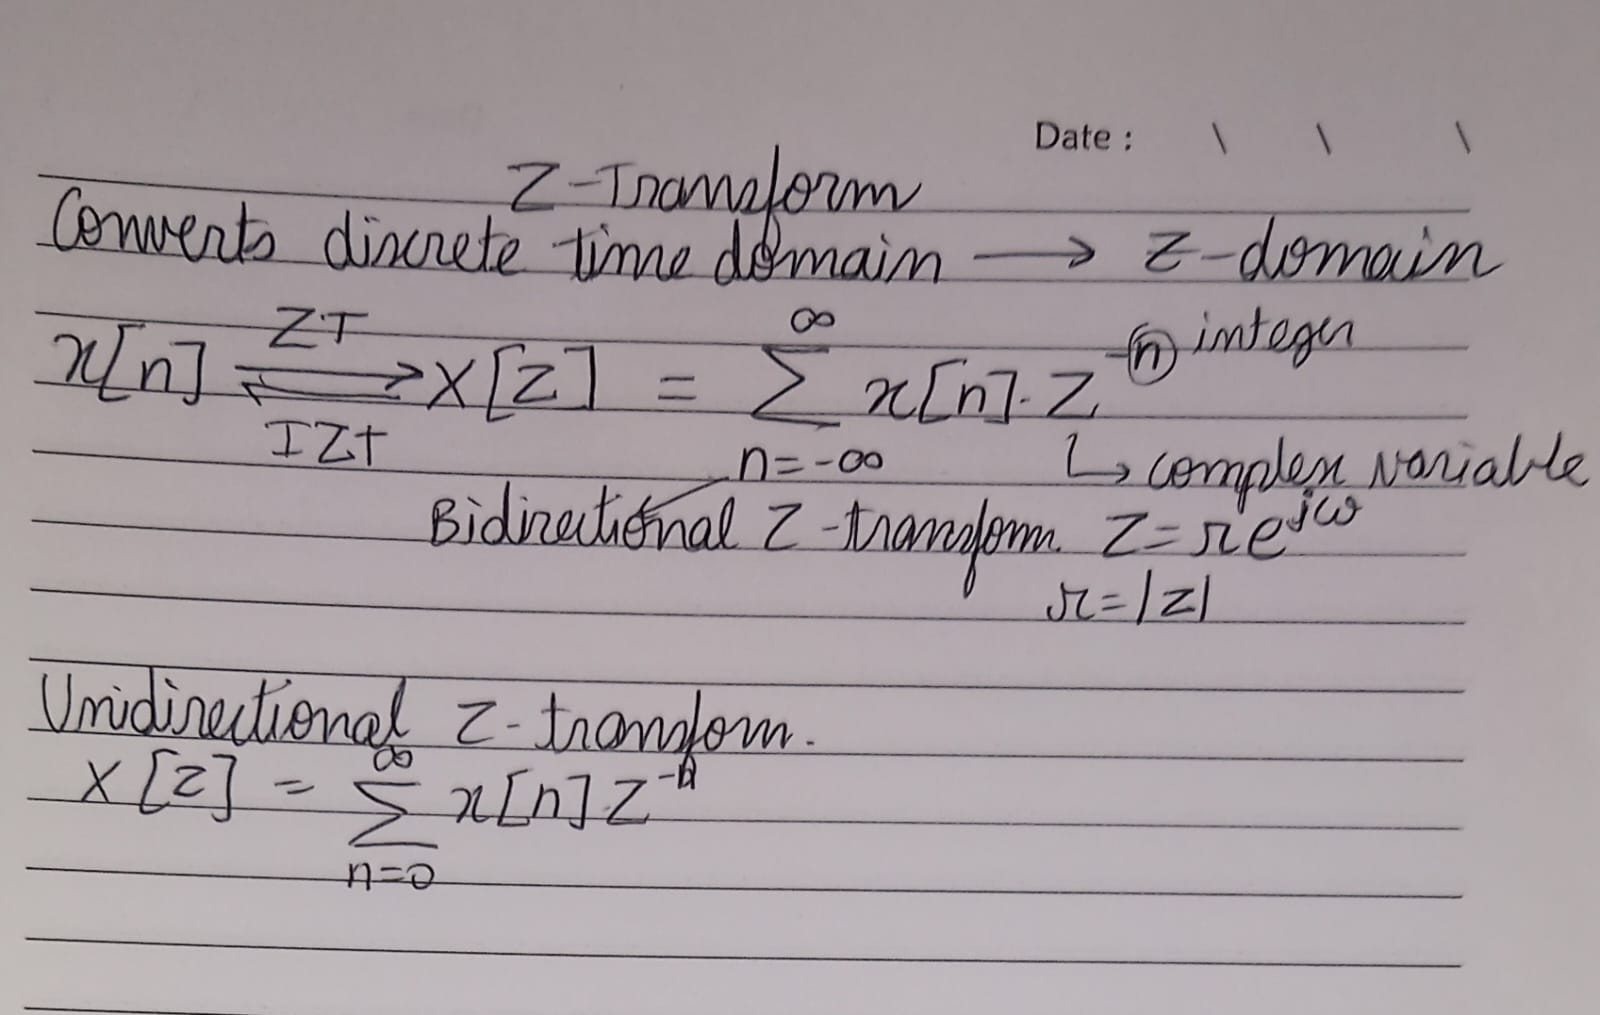 Date : \ \ \
Z-Transform
Converts discrete time domain → z-domain
x[n] ⇌ X[z] = ∑ x[n]. z^-n integer
ZT
IZT
∞
n=-∞
↳ complex variable
Bidirectional Z-transform. Z=re^jω
r=|z|
Unidirectional Z-transfom.
X[z] = ∑ x[n] z^-n
∞
n=0